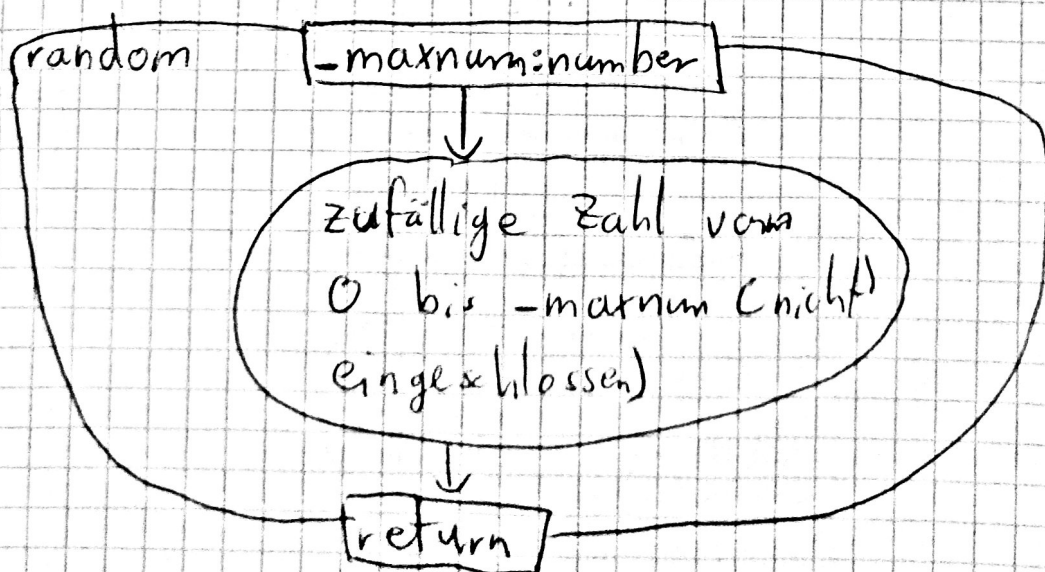 random
_maxnum:number
zufällige Zahl von
0 bis _maxnum (nicht
eingeschlossen)
return